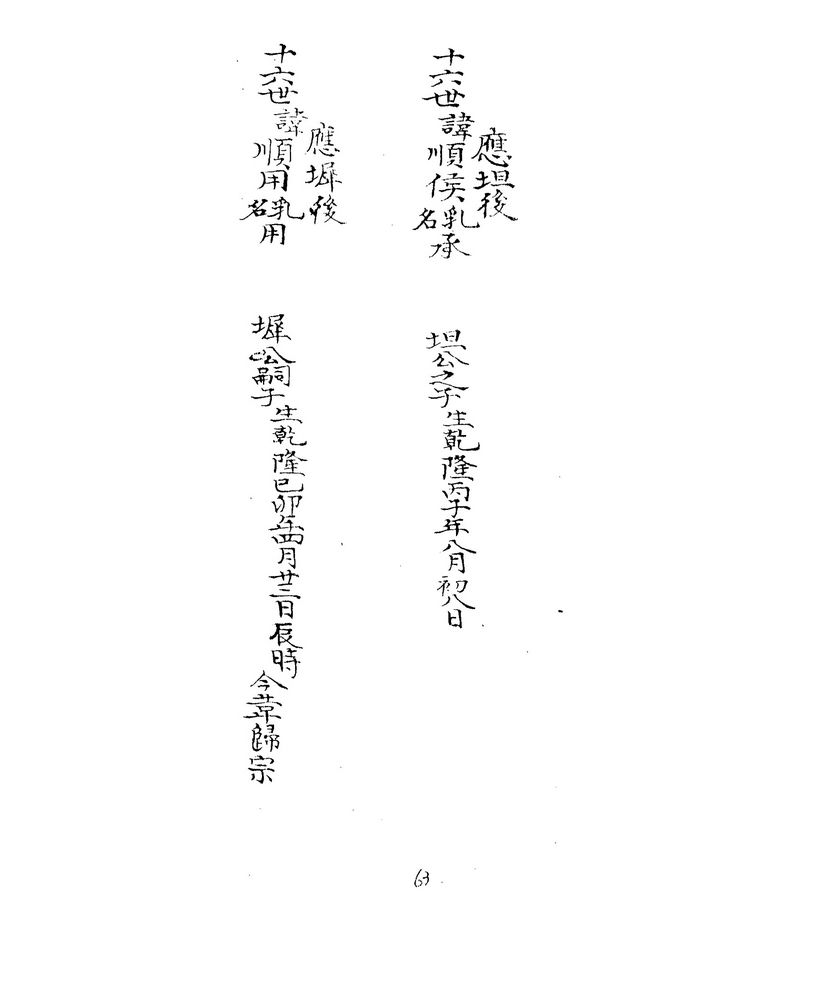 應坦後
十六世諱順侯乳名承
坦公之子生乾隆丙子年八月初八日
應墀後
十六世諱順用乳名用
墀公嗣子生乾隆已卯年四月廿三日辰時
今 歸宗
63